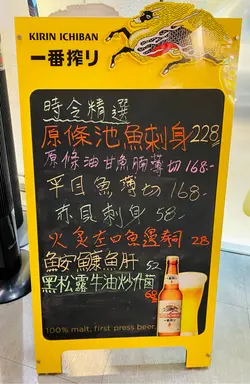 KIRIN ICHIBAN
一番搾り
時令精選
原條池魚刺身228
原條油甘魚腩薄切168-
平目魚薄切168-
赤貝刺身58-
火炙左口魚邊寿司28
鮟鱇魚肝52
黑松露牛油炒菌68
100% malt, first press beer.